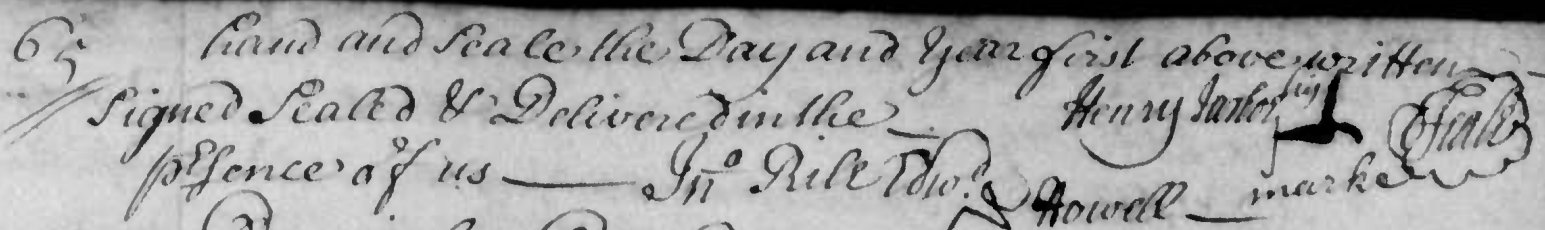 65 hand and Seale the Day and Year first above written
Signed Sealed & Delivered in the Henry his Seale
psence of us Jno Rill Edwd Howell marke